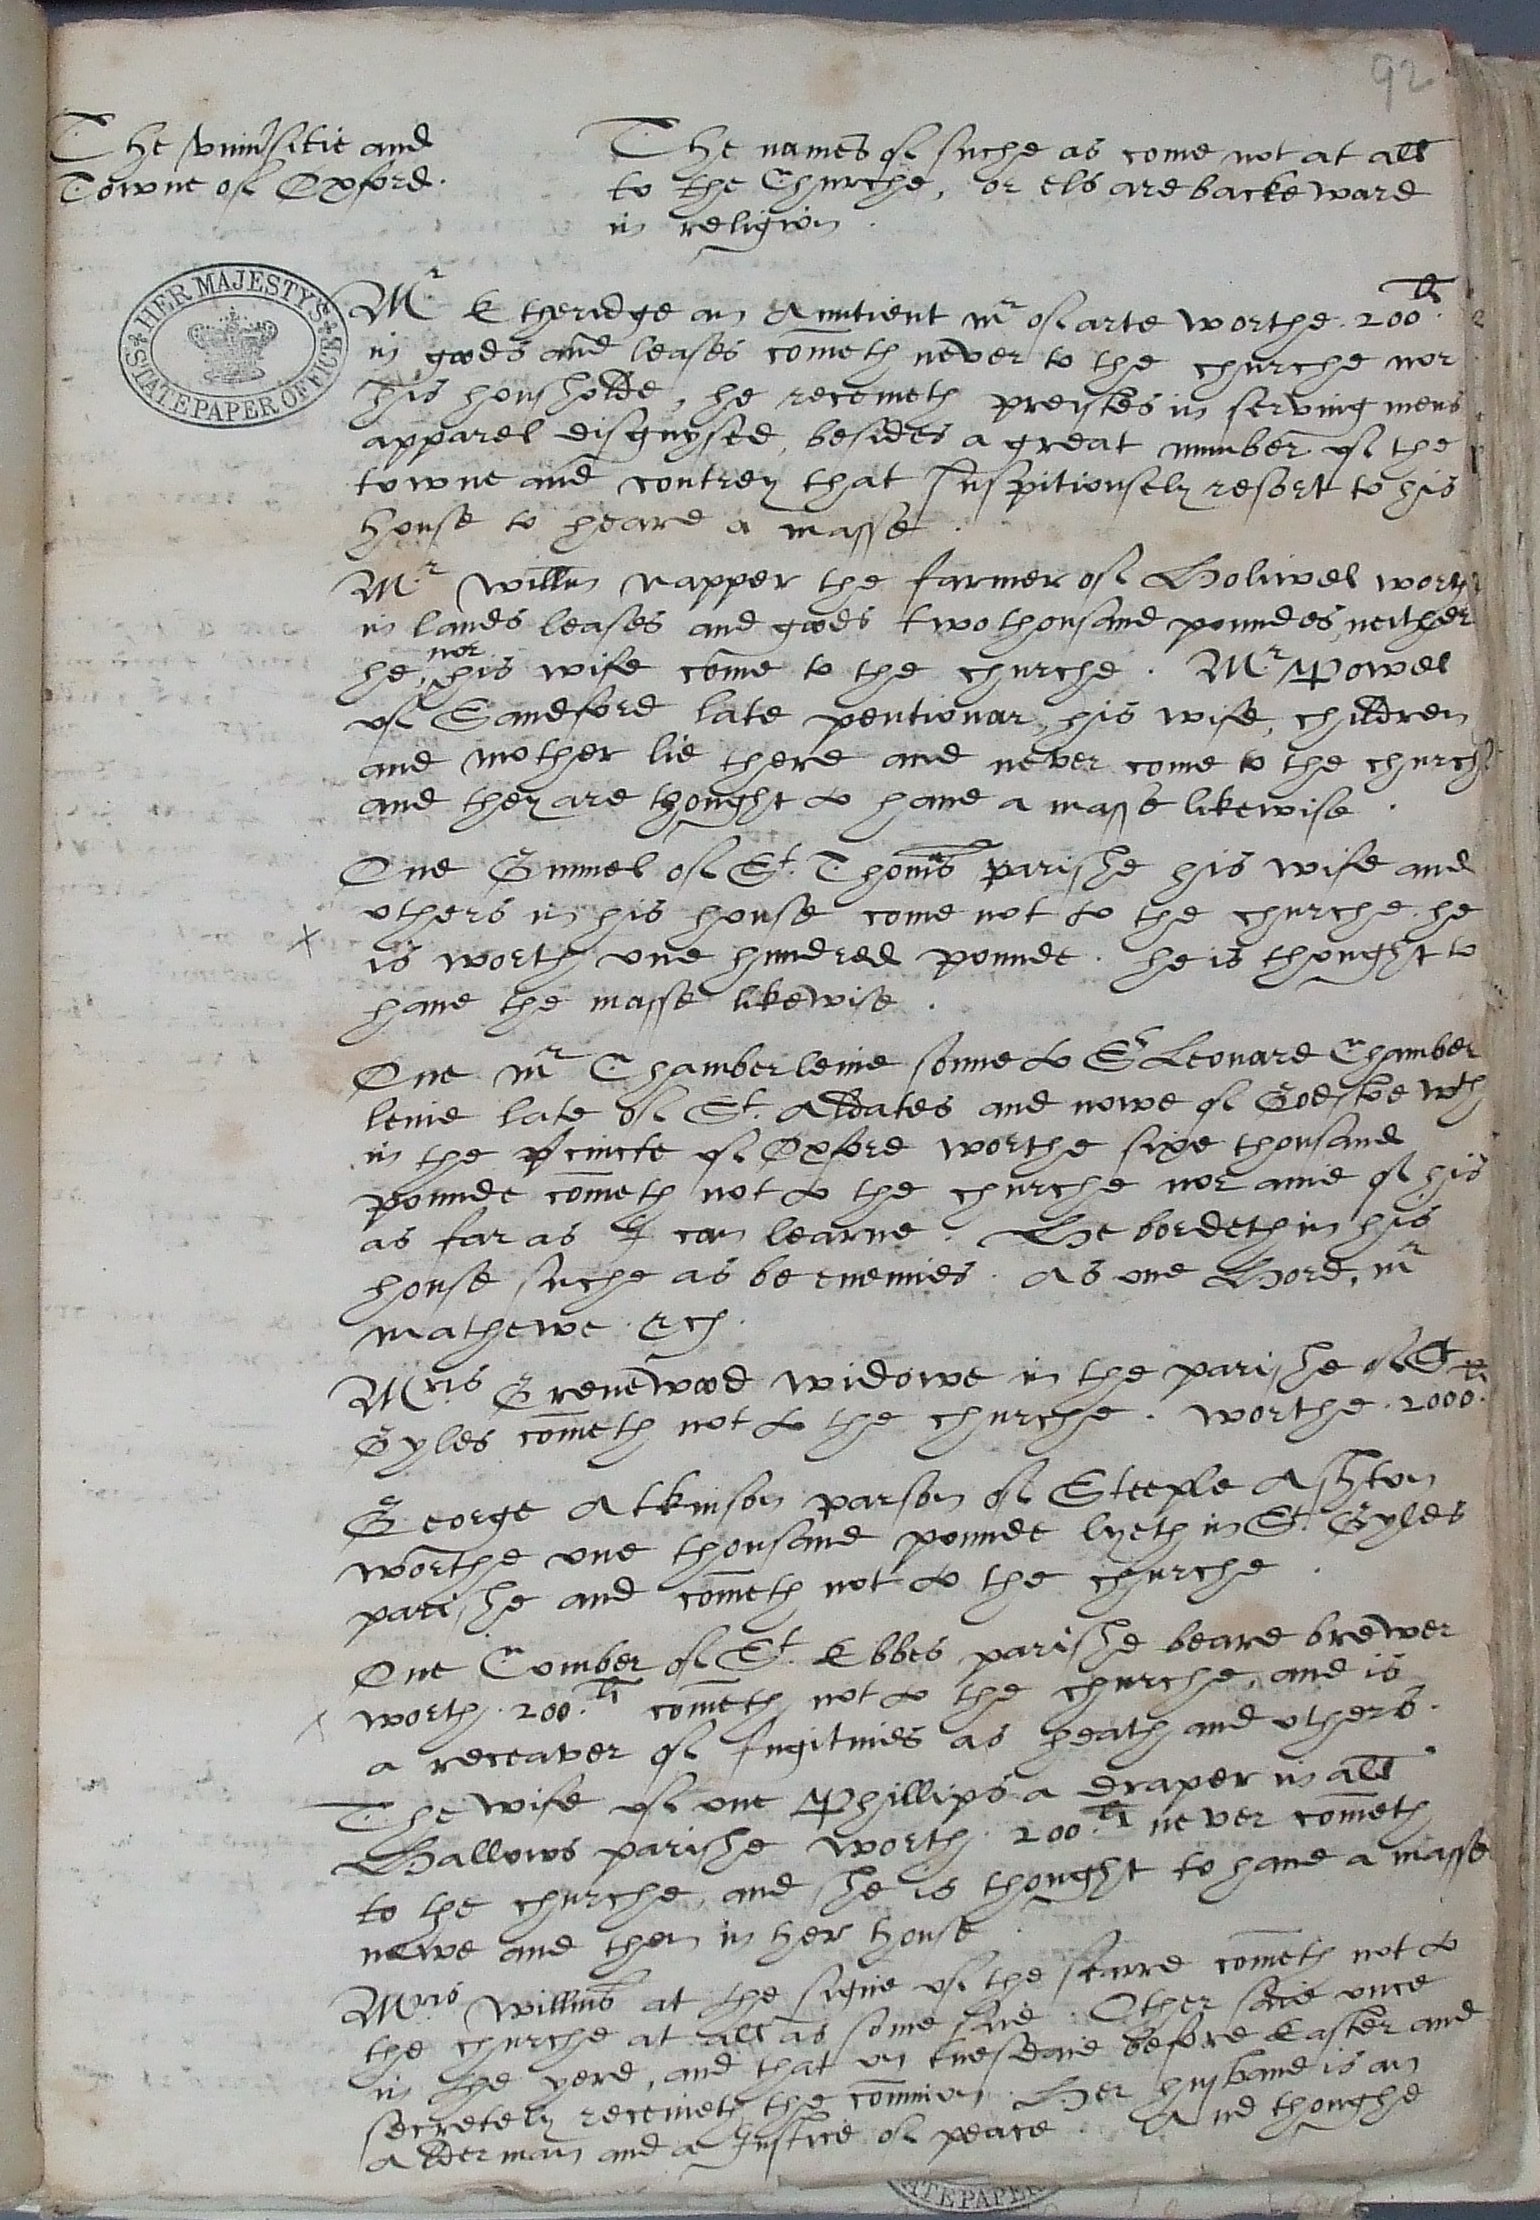 92
The vniuersitie and
Towne of Oxford.
The names of suche as come not at all
to the Churche, or els are backeward
in religion.
HER MAJESTY'S STATE PAPER OFFICE
Mr Etheridge an Auntient mr of arte worthe .200li.
in goods and leases cometh never to the churche nor
his housholde, he receiueth preystes in serving mens
apparel disguysed, besides a great number of the
towne and contrey that suspitiousely resort to his
house to heare a masse.
Mr Willm Napper the farmer of Holiwel worth
in lands leases and goods two thousand poundes, neither
he, nor his wife come to the churche. Mr Powel
of Sandford late pentionar, his wife, children
and mother lie there and never come to the churche
and they are thought to haue a masse likewise.
One Gunnel of St. Thoms parishe his wife and
others in his house come not to the churche. he
x is worth one hundred pounde. he is thought to
haue the masse likewise.
One mr Chamberleine sonne to Sr Leonard Chamber
leine late of St. Aldates and nowe of Godstoe wth
in the pcincte of Oxford worthe sixe thousand
pounde cometh not to the churche nor anie of his
as far as I can learne. He bordeth in his
house suche as be enemies. As one Hord, mr
mathewe. &c.
Mris Grenewood widowe in the parishe of St
Gyles cometh not to the churche. worthe .2000li.
George Atkinson parson of Steeple Ashton
worthe one thousand pounde lyeth in St. Gyles
parishe and cometh not to the churche.
One Comber of St. Ebbes parishe beare brewer
x worth .200.li cometh not to the churche, and is
a receaver of fugitiues as heath and others.
The wife of one Phillips a draper in all
Hallows parishe worth .200.li never cometh
to the churche, and she is thought to haue a masse
nowe and then in her house.
Mris Willms at the signe of the starre cometh not to
the churche at all as some saie. Other saie once
in the yere, and that on tuesdaie before Easter and
secretely receiueth the comunion. Her husband is an
Alderman and a Justice of peace. And thoughe
STATE PAPER